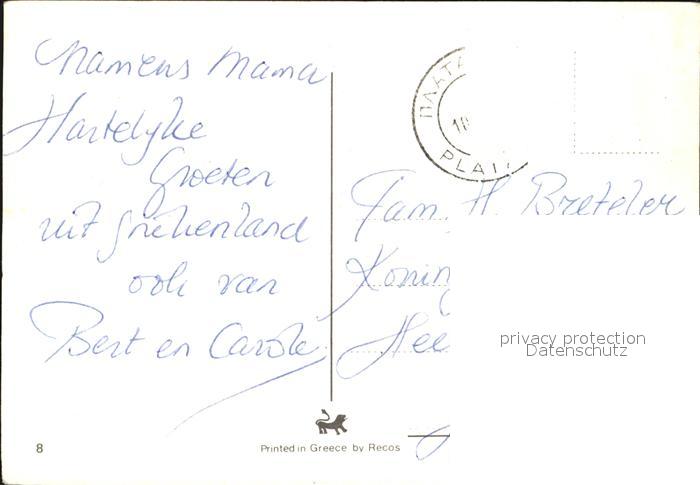 Namens Mama
Hartelyke
Groeten
uit Griekenland
ook van
Bert en Carole
ΠΛΑΤΑ
PLAT
Fam. H. Breteler
Koning
Hee
privacy protection
Datenschutz
8
Printed in Greece by Recos